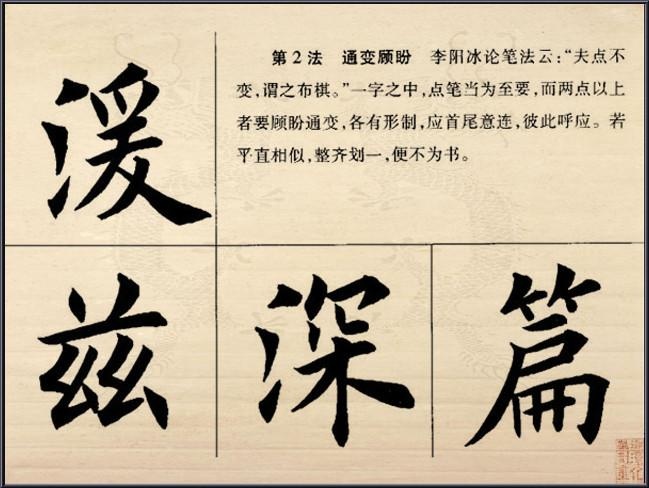 第2法 通变顾盼 李阳冰论笔法云：“夫点不
变，谓之布棋。”一字之中，点笔当为至要，而两点以上
者要顾盼通变，各有形制，应首尾意连，彼此呼应。若
平直相似，整齐划一，便不为书。
湲
兹 深 篇